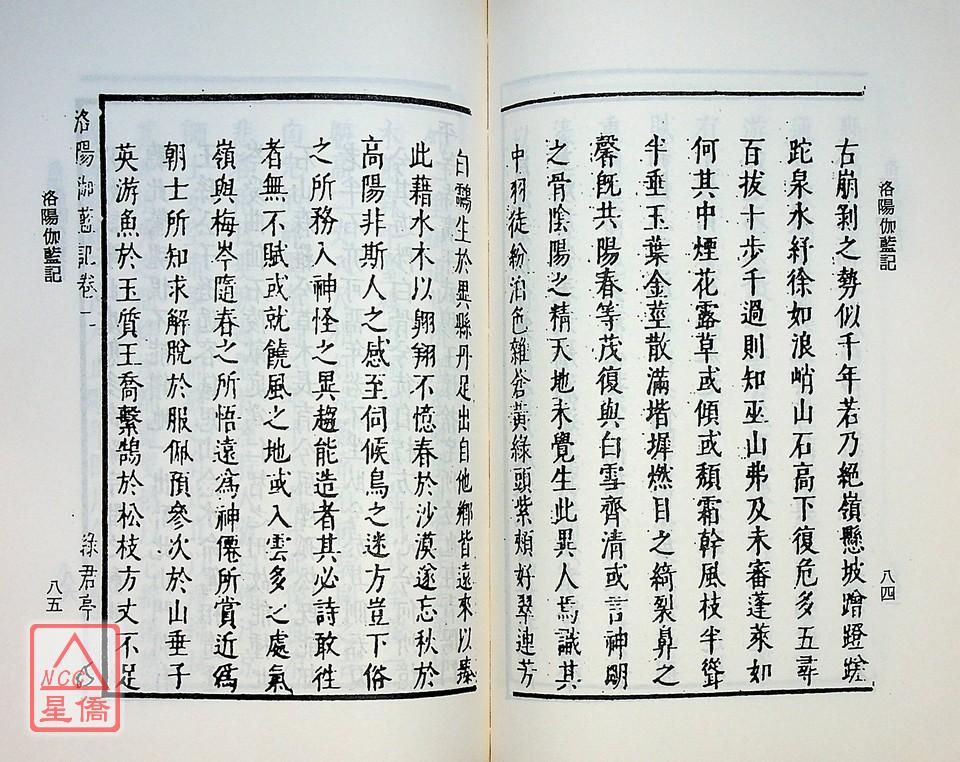 洛陽伽藍記
八四
右崩剝之勢似千年若乃絕嶺懸坡蹭蹬蹉
跎泉水紆徐如浪峭山石高下復危多五尋
百拔十步千過則知巫山弗及未審蓬萊如
何其中煙花露草或傾或頹霜幹風枝半聳
半垂玉葉金莖散滿堦墀燃目之綺裂鼻之
馨既共陽春等茂復與白雪齊清或言神明
之骨陰陽之精天地未覺生此異人焉識其
中羽徒紛泊色雜蒼黃綠頭紫頰好翠連芳
白鷳生於異縣丹足出自他鄉皆遠來以臻
此藉水木以翱翔不憶春於沙漠遂忘秋於
高陽非斯人之感至伺候鳥之迷方豈下俗
之所務入神怪之異趣能造者其必詩敢徃
者無不賦或就饒風之地或入雲多之處氣
嶺與梅岑隨春之所悟遠爲神僊所賞近爲
朝士所知求解脫於服佩預參次於山垂子
英游魚於玉質王喬繫鵠於松枝方丈不足
洛陽伽藍記卷二
綠君亭
洛陽伽藍記
八五
NCC
星僑